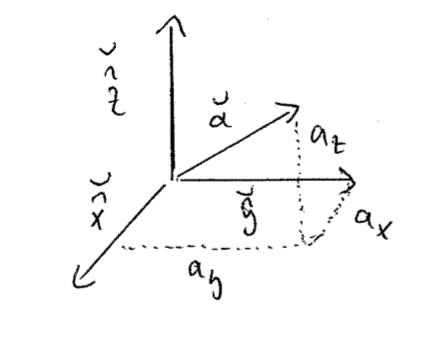 ẑ
a
a_z
x̂
ŷ
a_x
a_y